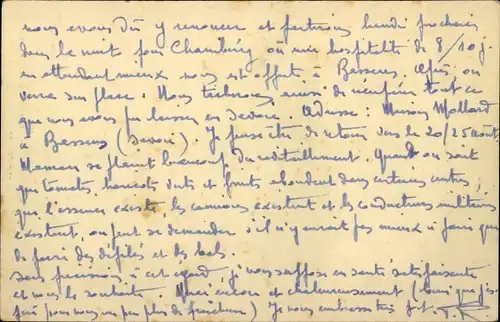 nous avons dû y renoncer et partirons lundi prochain
dans la nuit pour Chambéry où une hospitalité de 8/10 j
en attendant mieux nous est offerte à Bessens. Après on
verra sur place. Nous tâcherons aussi de récupérer tout ce
que nous avons pu laisser en Savoie. Adresse : Maison Mollard
à Bessens (Savoie). Je pense être de retour vers le 20/25 août.
Maman se plaint beaucoup du ravitaillement. Quand on sait
que tomates, haricots verts et fruits abondent dans certains centres,
que l'essence existe, les camions existent et les conducteurs militaires
existent, on peut se demander s'il n'y aurait pas mieux à faire que
de faire des défilés et des bals.
sans précisions à cet égard, je vous suppose en santé satisfaisante
et vous le souhaite. Merci encore et chaleureusement (
pour nous un peu plus de fraîcheur) Je vous embrasse très fort.